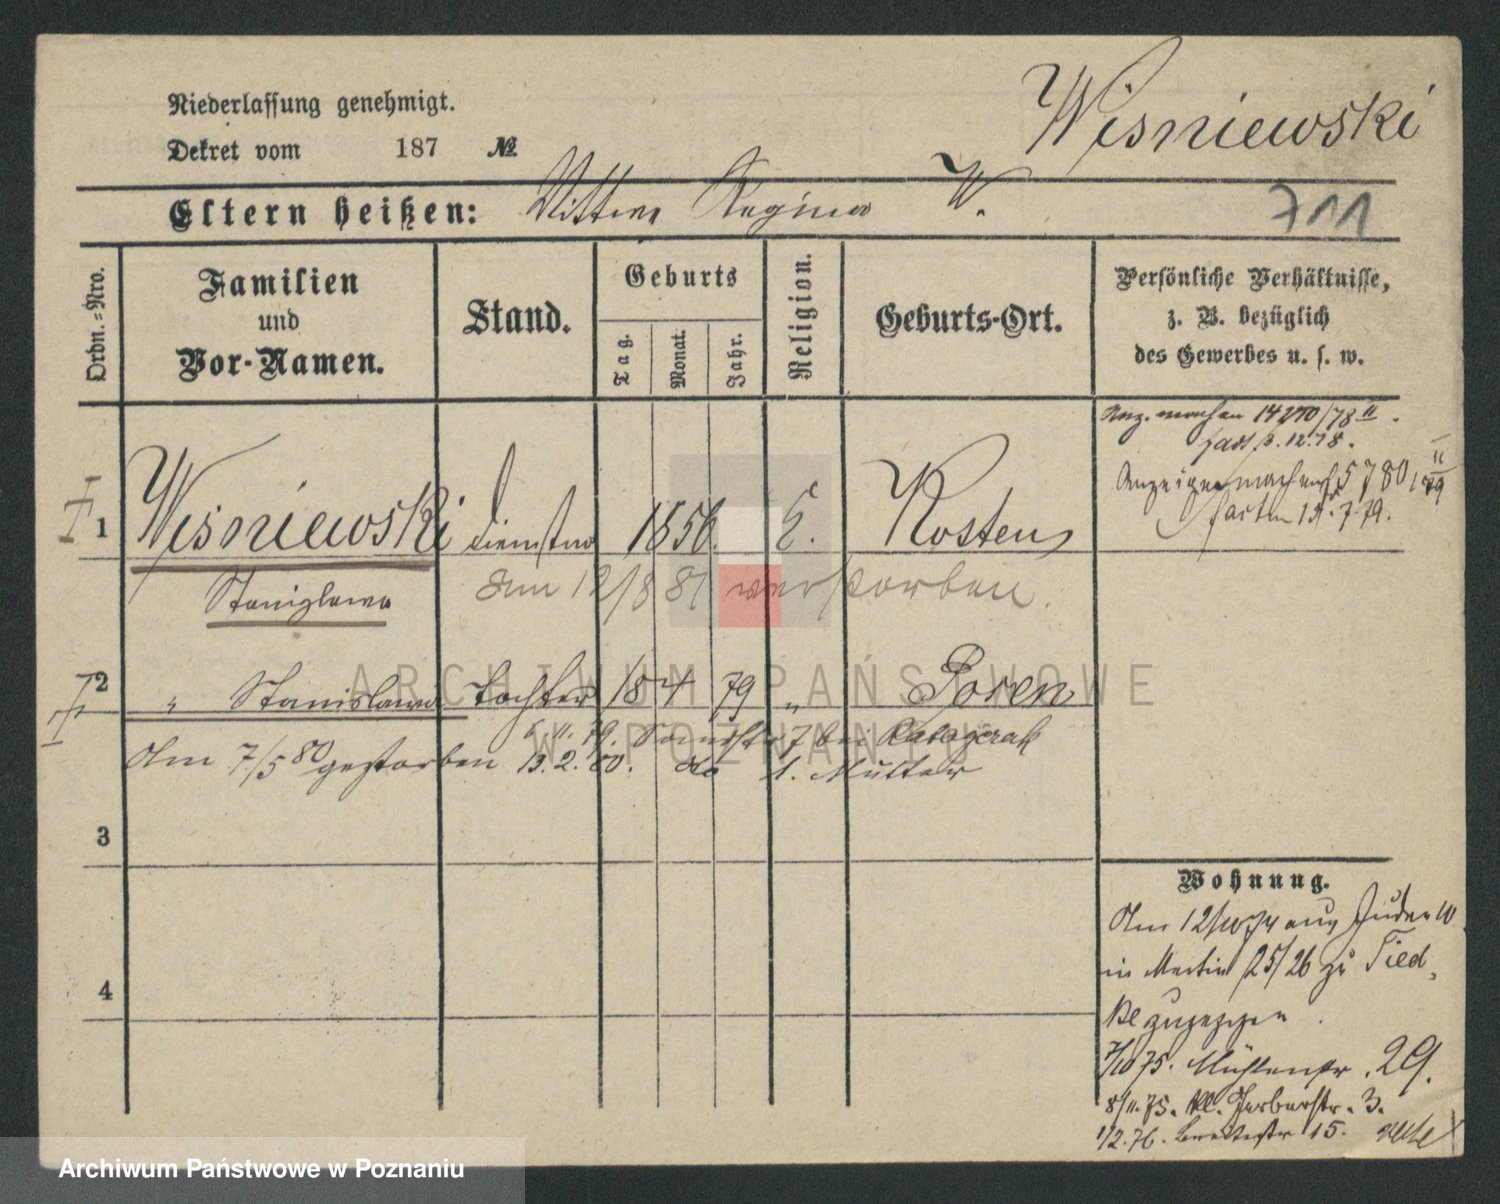 Niederlassung genehmigt.
Dekret vom 187 №
Wiśniewski
Eltern heißen: Regina W.
711
Ordn.=Nro.
Familien
und
Vor-Namen.
Stand.
Geburts
Tag.
Monat.
Jahr.
Religion.
Geburts-Ort.
Persönliche Verhältnisse,
z. B. bezüglich
des Gewerbes u. s. w.
Anz. machen 14270/78 II.
3.12.78.
1 Wiśniewski 1856. Kosten
Anzeige machen 5780/79 II
Stanislawa
Am 12/8 81 verstorben.
2 " Stanislawa Tochter 18 4 79 " Posen
6. 11. 79.
Am 7/5 80 gestorben 13. 2. 80. do z. Mutter
3
4
Wohnung.
Am 12/10 74 aus Juden 10
in Martin 25/26 zu Tied,
ke zugezogen.
7/10 75. Mühlenstr. 29.
8/11. 75. Kl. Gerberstr. 3.
1/2. 76. Breitestr 15. verte
ARCHIWUM PAŃSTWOWE
W POZNANIU
Archiwum Państwowe w Poznaniu